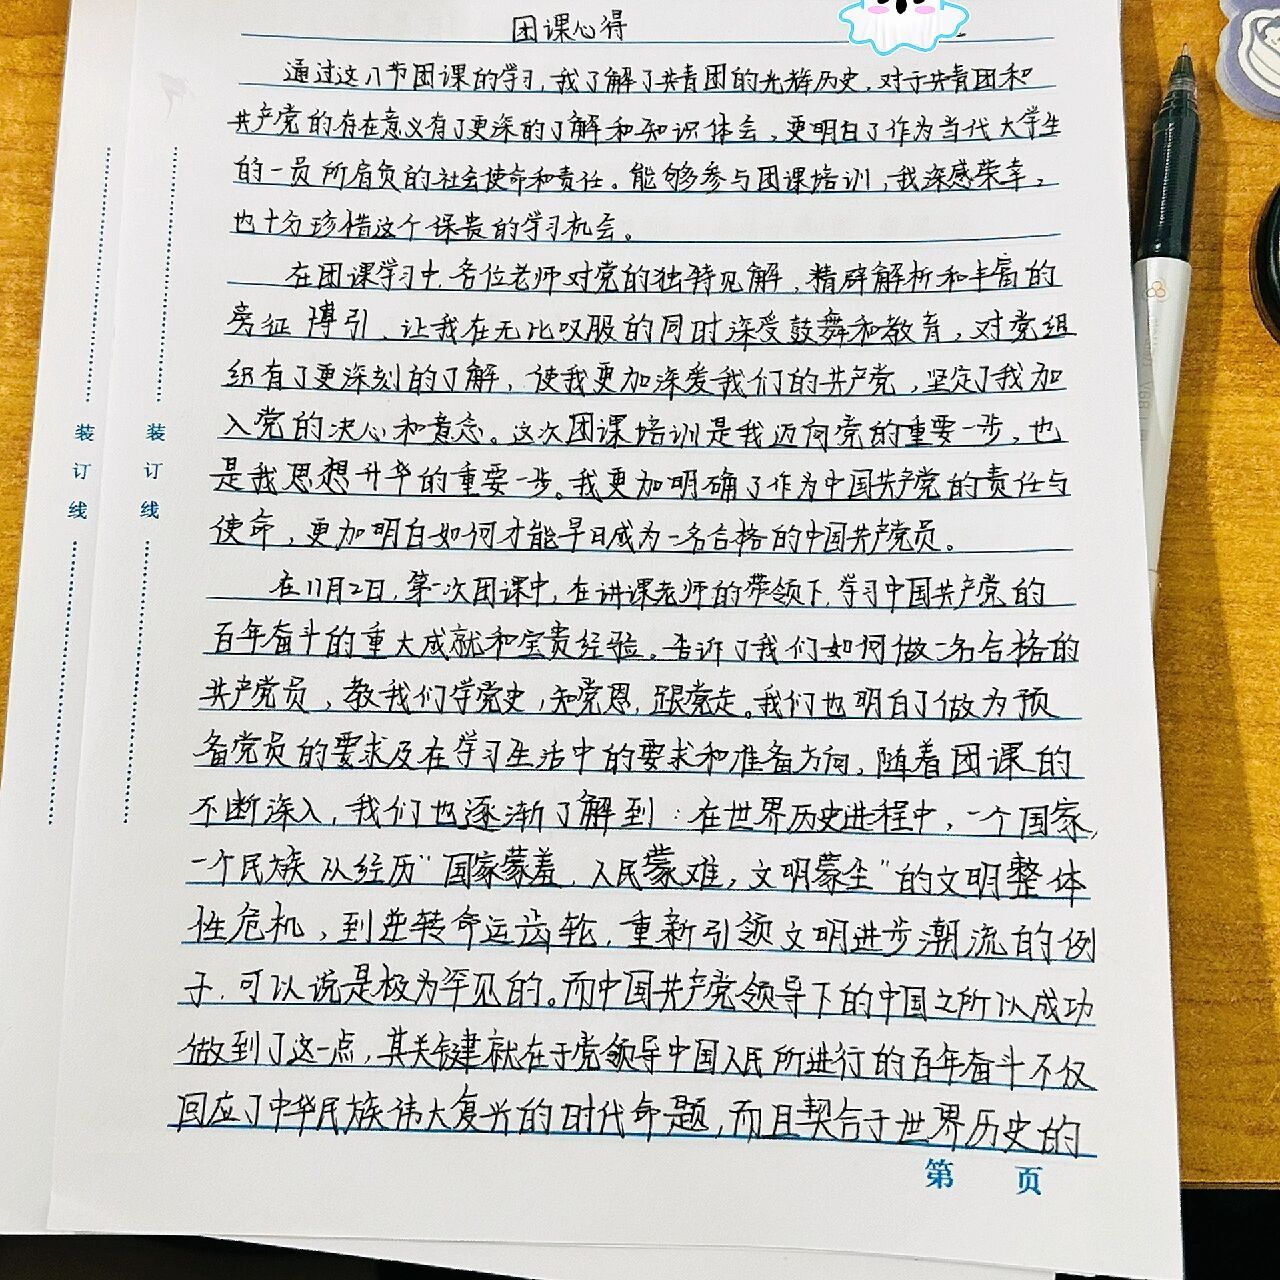 团课心得
通过这八节团课的学习,我了解了共青团的光辉历史,对于共青团和
共产党的存在意义有了更深的了解和知识体会,更明白了作为当代大学生
的一员所肩负的社会使命和责任。能够参与团课培训,我深感荣幸,
也十分珍惜这个保贵的学习机会。
在团课学习中,各位老师对党的独特见解,精辟解析和丰富的
旁征博引,让我在无比叹服的同时深受鼓舞和教育,对党组
织有了更深刻的了解,使我更加深爱我们的共产党,坚定了我加
入党的决心和意志。这次团课培训是我迈向党的重要一步,也
是我思想升华的重要一步。我更加明确了作为中国共产党的责任与
使命,更加明白如何才能早日成为一名合格的中国共产党员。
在11月2日,第一次团课中,在讲课老师的带领下,学习中国共产党的
百年奋斗的重大成就和宝贵经验。告诉了我们如何做一名合格的
共产党员,教我们学党史,知党恩,跟党走。我们也明白了做为预
备党员的要求及在学习生活中的要求和准备方向,随着团课的
不断深入,我们也逐渐了解到:在世界历史进程中,一个国家,
一个民族从经历“国家蒙羞,人民蒙难,文明蒙尘”的文明整体
性危机,到逆转命运齿轮,重新引领文明进步潮流的例
子,可以说是极为罕见的。而中国共产党领导下的中国之所以成功
做到了这一点,其关键就在于党领导中国人民所进行的百年奋斗不仅
回应了中华民族伟大复兴的时代命题,而且契合于世界历史的
第 页
装订线
装订线